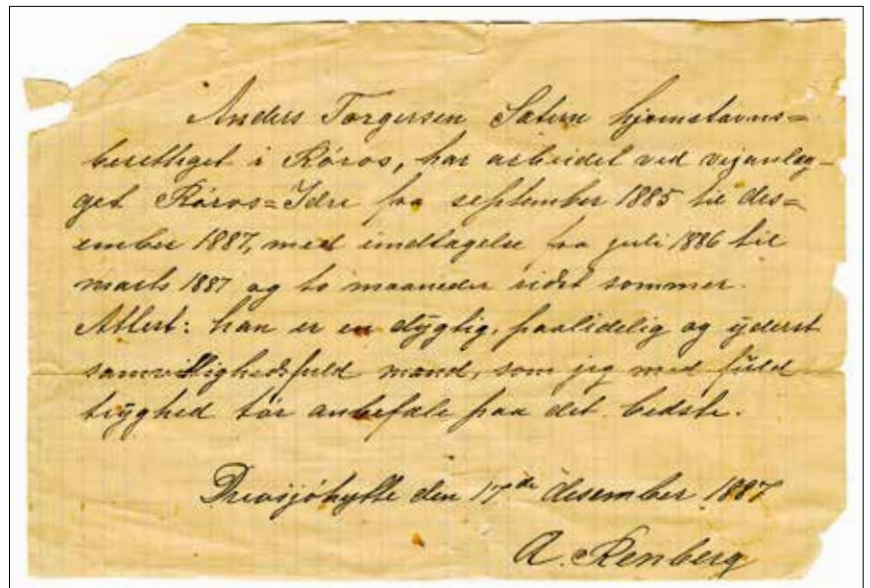 Anders Torgersen Sätern hjemstavns=
berettiget i Röros, har arbeidet ved vejanlæg-
get Röros=Idre fra september 1885 til des=
ember 1887, med undtagelse fra juli 1886 til
marts 1887 og to maaneder sidst sommer.
Attest: han er en dygtig, paalidelig og yderst
samvittighedsfuld mand, som jeg med fuld
tryghed tör anbefale paa det bedste.
Drevsjöhytte den 17de desember 1887
A. Renberg